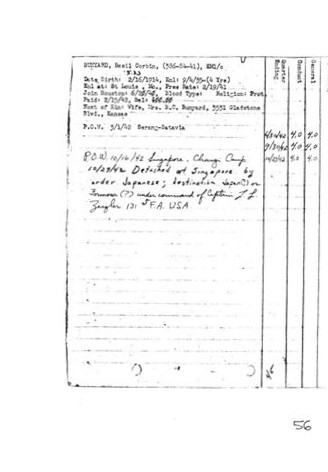 BUNYARD, Basil Corbin, (336-84-41), EM1/c
N.R.
Date Birth: 2/16/1914, Enl: 9/4/35-(4 Yrs)
Enl at: St Louis, Mo., Pres Rate: 2/19/41
Join Houston: Blood Type: Religion: Prot.
Paid: 2/15/42, Bal:
Next of Kin: Wife, Mrs. B.C. Bunyard, 3551 Gladstone
Blvd., Kansas
P.O.W. 3/1/42 Serang-Batavia
P.O.W. 10/16/42 Singapore. Changi Camp
10/29/42 Detached at Singapore by
order Japanese; destination Japan(?) or
Formosa (?) under command of Captain
Zeigler 131st F.A. USA
Quarter Ending
Conduct
General
4.0 4.0
9/30/42 4.0 4.0
4.0 4.0
56